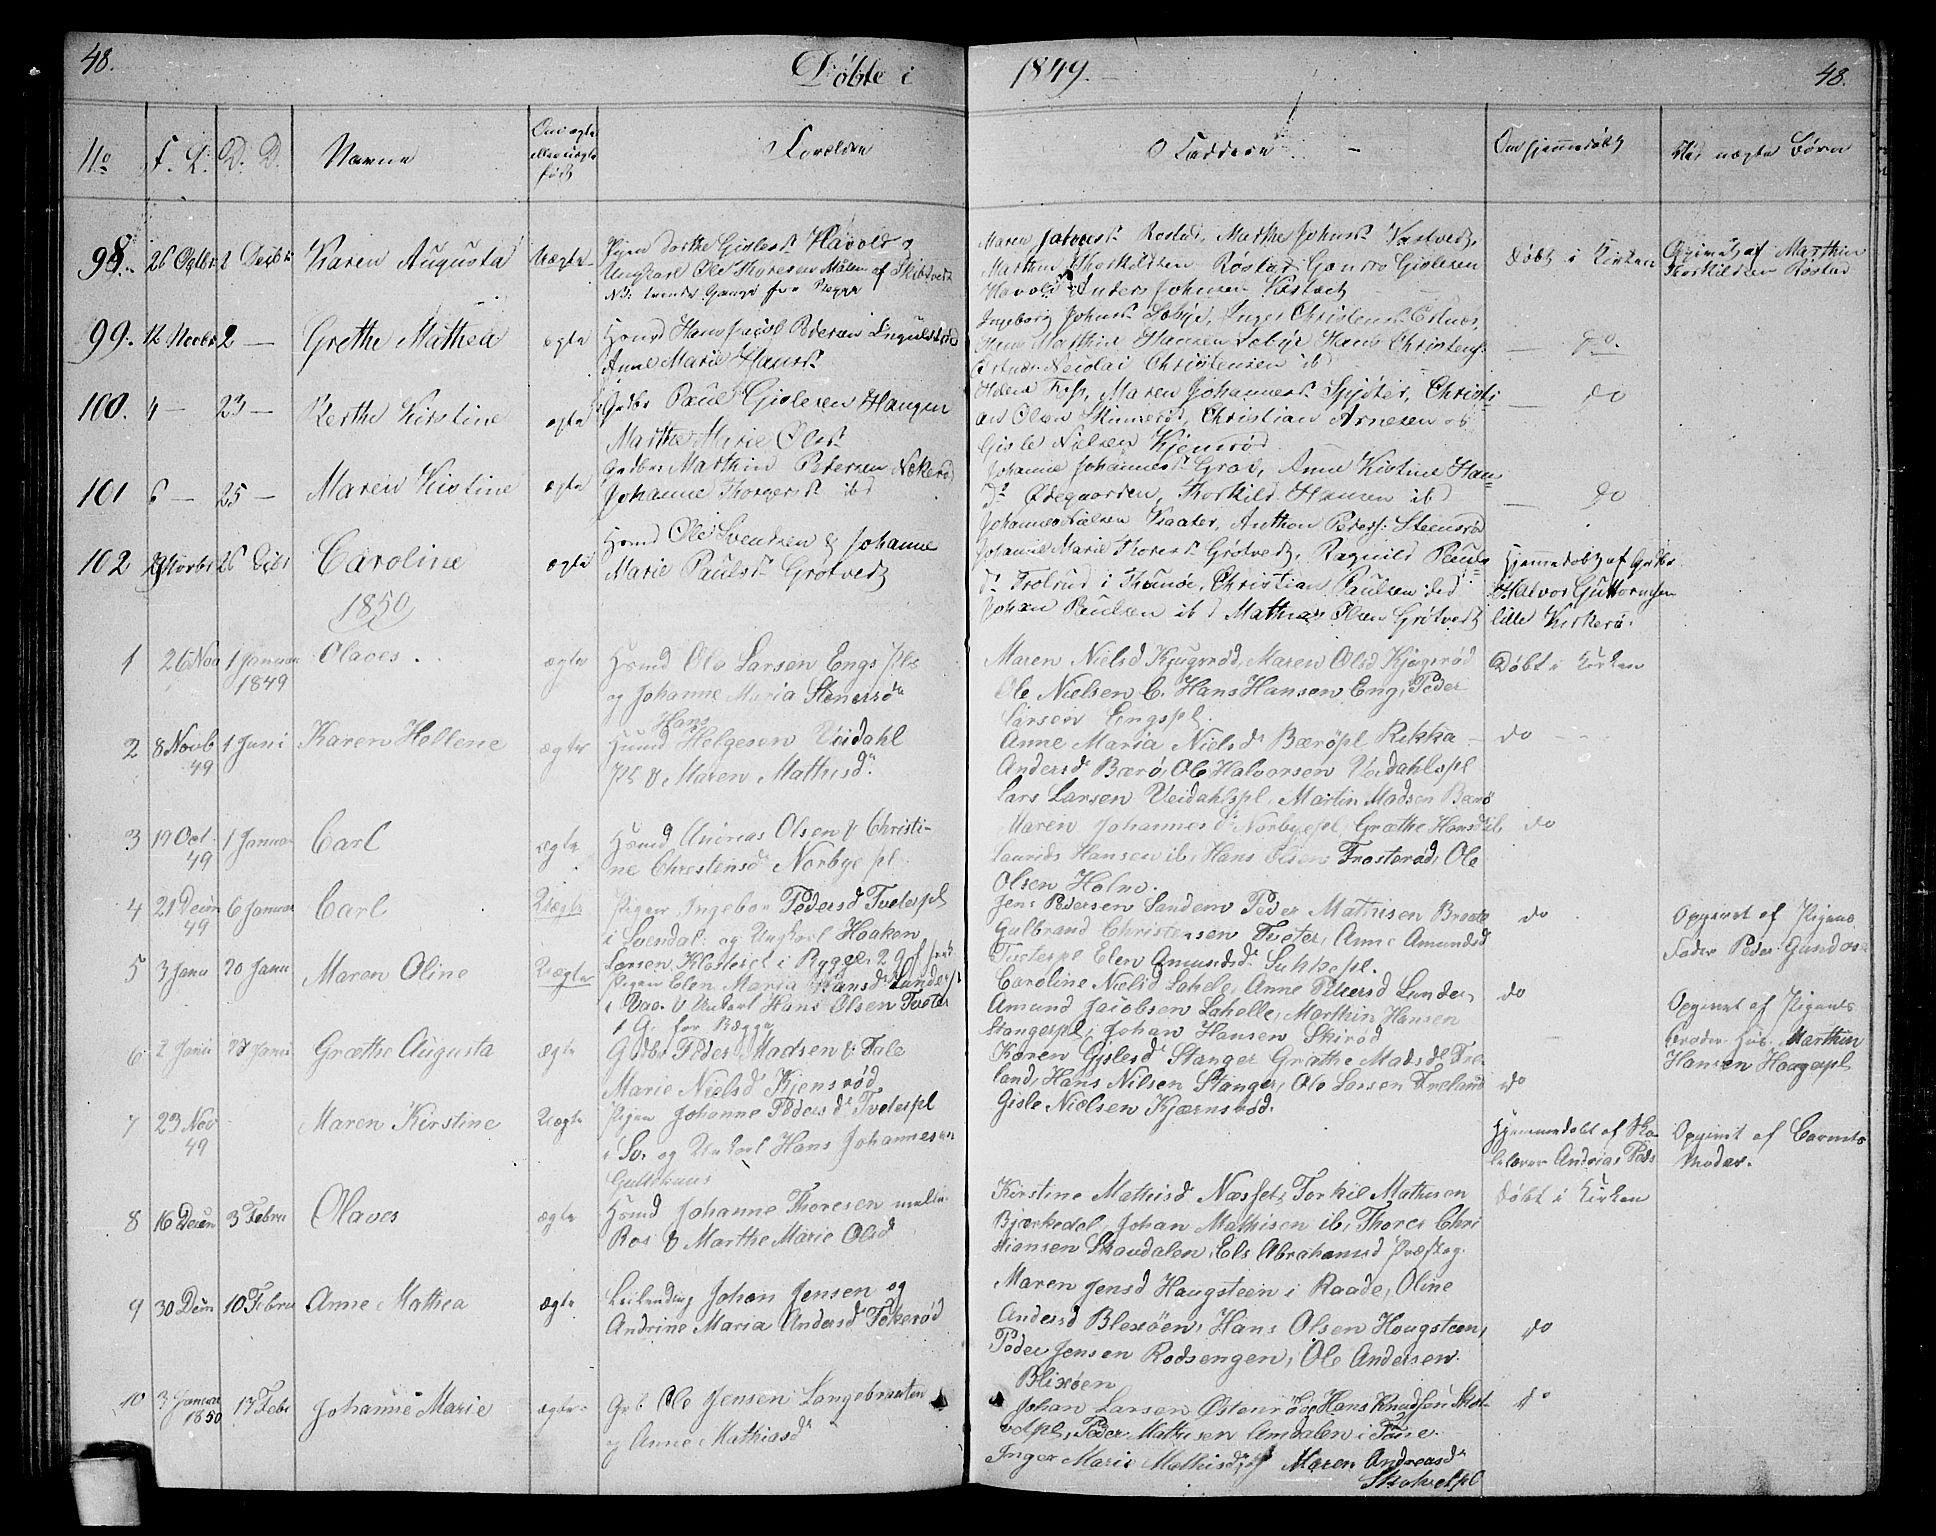 48.
Døbte i
1849.
48.
No
F. D.
D. D.
Navne
Om ægte eller uægte født
Forældre
Faddere
Om hjemmedøbt
Ved uægte Børn
98. 26 Octbr 2 Decbr Karen Augusta Uægte Pigen Dorthe Gislesd. Havold og
Ungkarl Ole Thoresen Målen af Skibtvedt
Maren Jacobsd. Rostad, Marthe Johnsd. Vestvedt,
Marthin Thorkildsen Røstad, Gislesen
Havold Anders Johnsen
Døbt i Kirken
Opgivet af Marthin
Thorkildsen Røstad
99. 12 Novbr 2 — Grethe Mathea ægte Husmd Hans Jacob Pedersen
Anne Marie Hansd.
Ingeborg Johnsd. Sobye, Inger Christensd. Østnes,
Hans Mathias Hansen Sobye Hans Christens.
Østnes Nicolai Christensen ibd
— do.
100. 4 — 23 — Berthe Kirstine ægte Gdbr Paul Gislesen Haugen
Marthe Marie Olsd.
Helene Foss, Maren Johannesd. Spydter, Christi-
an Olsen Skinnerød, Christian Arnesen og
Gisle Nielsen Kjensrød
— do
101 6 — 25 — Maren Kirstine ægte Gdbr Marthin Pedersen Nøkerød
Johanne Thorgersd. ibd
Johanne Johannesd. Grav, Anne Kirstine Han-
sd. Ødegaarden, Thorkild Hansen ibd
Johannes Nielsen Kaater, Anthon Peders. Steensrød
— do
102 29 Novbr 26 Decbr Caroline ægte Husmd Ole Svendsen & Johanne
Marie Paulsd. Grøtvedt
Johanne Marie Thoresd. Grøtvedt, Ragnild Pauls-
d. Frolrud i Thomøe, Christian Paulsen ibd
Johan Paulsen ibd Mathias Olsen Grøtvedt
Hjemmedøbt af Gdbr.
Halvor Guttormsen
lille Kirkerø.
1850
1 26 Nov 1849 1 Januar Olaves. ægte Husmd Ole Larsen Engs pls
og Johanne Maria Stenersd.
Maren Nielsd Kjugsrød, Maren Olsd Kjugsrød
Ole Nielsen C. Hans Hansen Eng, Peder
Larsen Engspl.
Døbt i Kirken
2 8 Novb 49 1 Juni Karen Hellene ægte Husmd Hans Helgesen Veidahl
Pls & Maren Mathisd.
Anne Maria Nielsd. Bærøpl Rikka
Andersd. Bærø, Ole Halvorsen Veidahlspl
Lars Larsen Veidahlspl, Martin Madsen Bærø
do
3 19 Oct. 49 1 Januar Carl ægte Husmd Andreas Olsen & Christi-
ne Chrestensd. Norbye pl.
Maren Johannesd. Norbyepl, Græthe Hansd. ib,
Laurids Hansen ib, Hans Olsen Frosterød, Ole
Olsen Holm.
do
4 21 Decm 49 6 Januar Carl Uægte Pigen Ingebor Pedersd Tvetespl
i Svendal. og Ungkarl Haaken
Larsen Klosteret i Rygge. 2 G. f. beg.
Jens Pedersen Sandem Peder Mathisen Braate
Gulbrand Christensen Tveter, Anne Amundsd
Tvetespl Elen Amundsd. Sukkepl.
do
Opgivet af Pigens
Fader Peder Gundersen
5 3 Janu 20 Janu Maren Oline Uægte Pigen Elen Maria Hansd. Lunderp
i Vao. & Unkarl Hans Olsen Tveter
1 G. for Begge
Caroline Nielsd Lahele, Anne Pedersd Lunder,
Amund Jacobsen Lahelle, Marthin Hansen
Stangerpl, Johan Hansen Skirød
do
Opgivet af Pigens
Broder Hus. Marthin
Hansen Haagespl
6 2 Janu 20 Janu Græthe Augusta ægte Gdbr Peder Madsen & Tale
Marie Nielsd Kjensrød.
Karen Gislesd Stanger Græthe Madsd. Fre-
land, Hans Nilsen Stanger, Ole Larsen Freland
Gisle Nielsen Kjærnsrød.
do
7 23 Nov 49 Maren Kirstine Uægte Pigen Johanne Pedersd. Tvetespl
i Sv. og Unkarl Hans Johannesen
Guldhaus
Hjemmedøbt af Sko-
lelærer Andreas Peds
Opgivet af Barnets
Moder.
8 16 Decem 3 Febru Olaves ægte Husmd Johanne Thoresen
Ros & Marthe Marie Olsd
Kirstine Mathisd Næsset, Torkil Mathisen
Bjærkedel, Johan Mathisen ib, Thorer Chri
stiansen Skaudalen, Els Abrahamsd Præsteg.
Døbt i Kirken
9 30 Decm 10 Febru Anne Mathea ægte Leilending Johan Jensen og
Andrine Maria Andersd Tekerød
Maren Jensd Haugsteen i Raade, Oline
Andersd Blexøen, Hans Olsen Hougsteen,
Peder Jensen Rodsengen, Ole Andersen
Blixøen
do
10 3 Januar 1850 17 Febr Johanne Marie ægte Gb Ole Jensen Langebraaten
og Anne Mathiasd
Johan Larsen Østenrød Hans Knudsen Skol-
vdtpl, Peder Mathisen Amdalen i Tune.
Inger Marie Mathisd, og Maren Andreasd
Skolvetpl
do